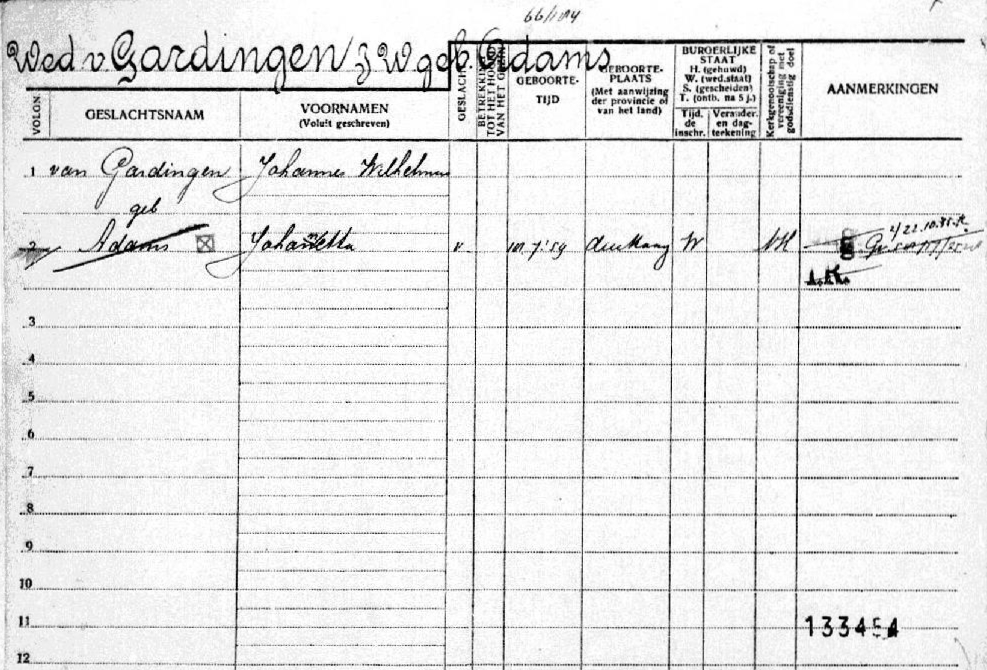 Wed v Gardingen J W geb. Adams
VOLGN.
GESLACHTSNAAM
VOORNAMEN
(Voluit geschreven)
GESLACHT
BETREKKING TOT HET HOOFD VAN HET GEZIN
GEBOORTE-
TIJD
GEBOORTE-
PLAATS
(Met aanwijzing
der provincie of
van het land)
BURGERLIJKE
STAAT
H. (gehuwd)
W. (wed.staat)
S. (gescheiden)
T. (ontb. na 5 j.)
Tijd.
de
inschr.
Verander.
en dag-
teekening
Kerkgenootschap of
vereeniging met
godsdienstig doel
AANMERKINGEN
1 van Gardingen Johannes Wilhelmus
geb
2 Adams Johannetta v den Haag W NH
3
4
5
6
7
8
9
10
11
133454
12